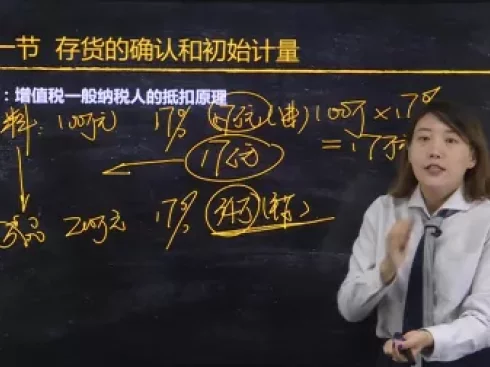 一节 存货的确认和初始计量
：增值税一般纳税人的抵扣原理
料：100万元 17% 17万元 100万×17%
=17万元
17万
产品 200万元 17% 34万